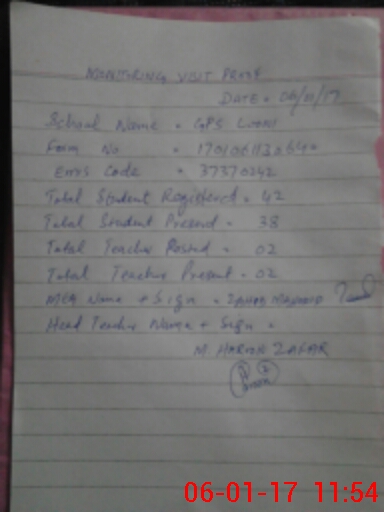 MONITORING VISIT PROOF
DATE = 06/01/17
School Name = GPS
Form No =
Emis Code = 37370242
Total Student Registered = 42
Total Student Present = 38
Total Teacher Posted = 02
Total Teacher Present = 02
MEA Name + Sign =
Head Teacher Name + Sign =
M. HAROON ZAFAR
06-01-17 11:54